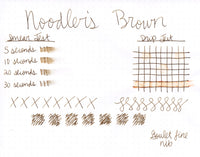 Noodler's Brown
Smear Test
Drip Test
5 seconds
10 seconds
20 seconds
30 seconds
Goulet fine
nib